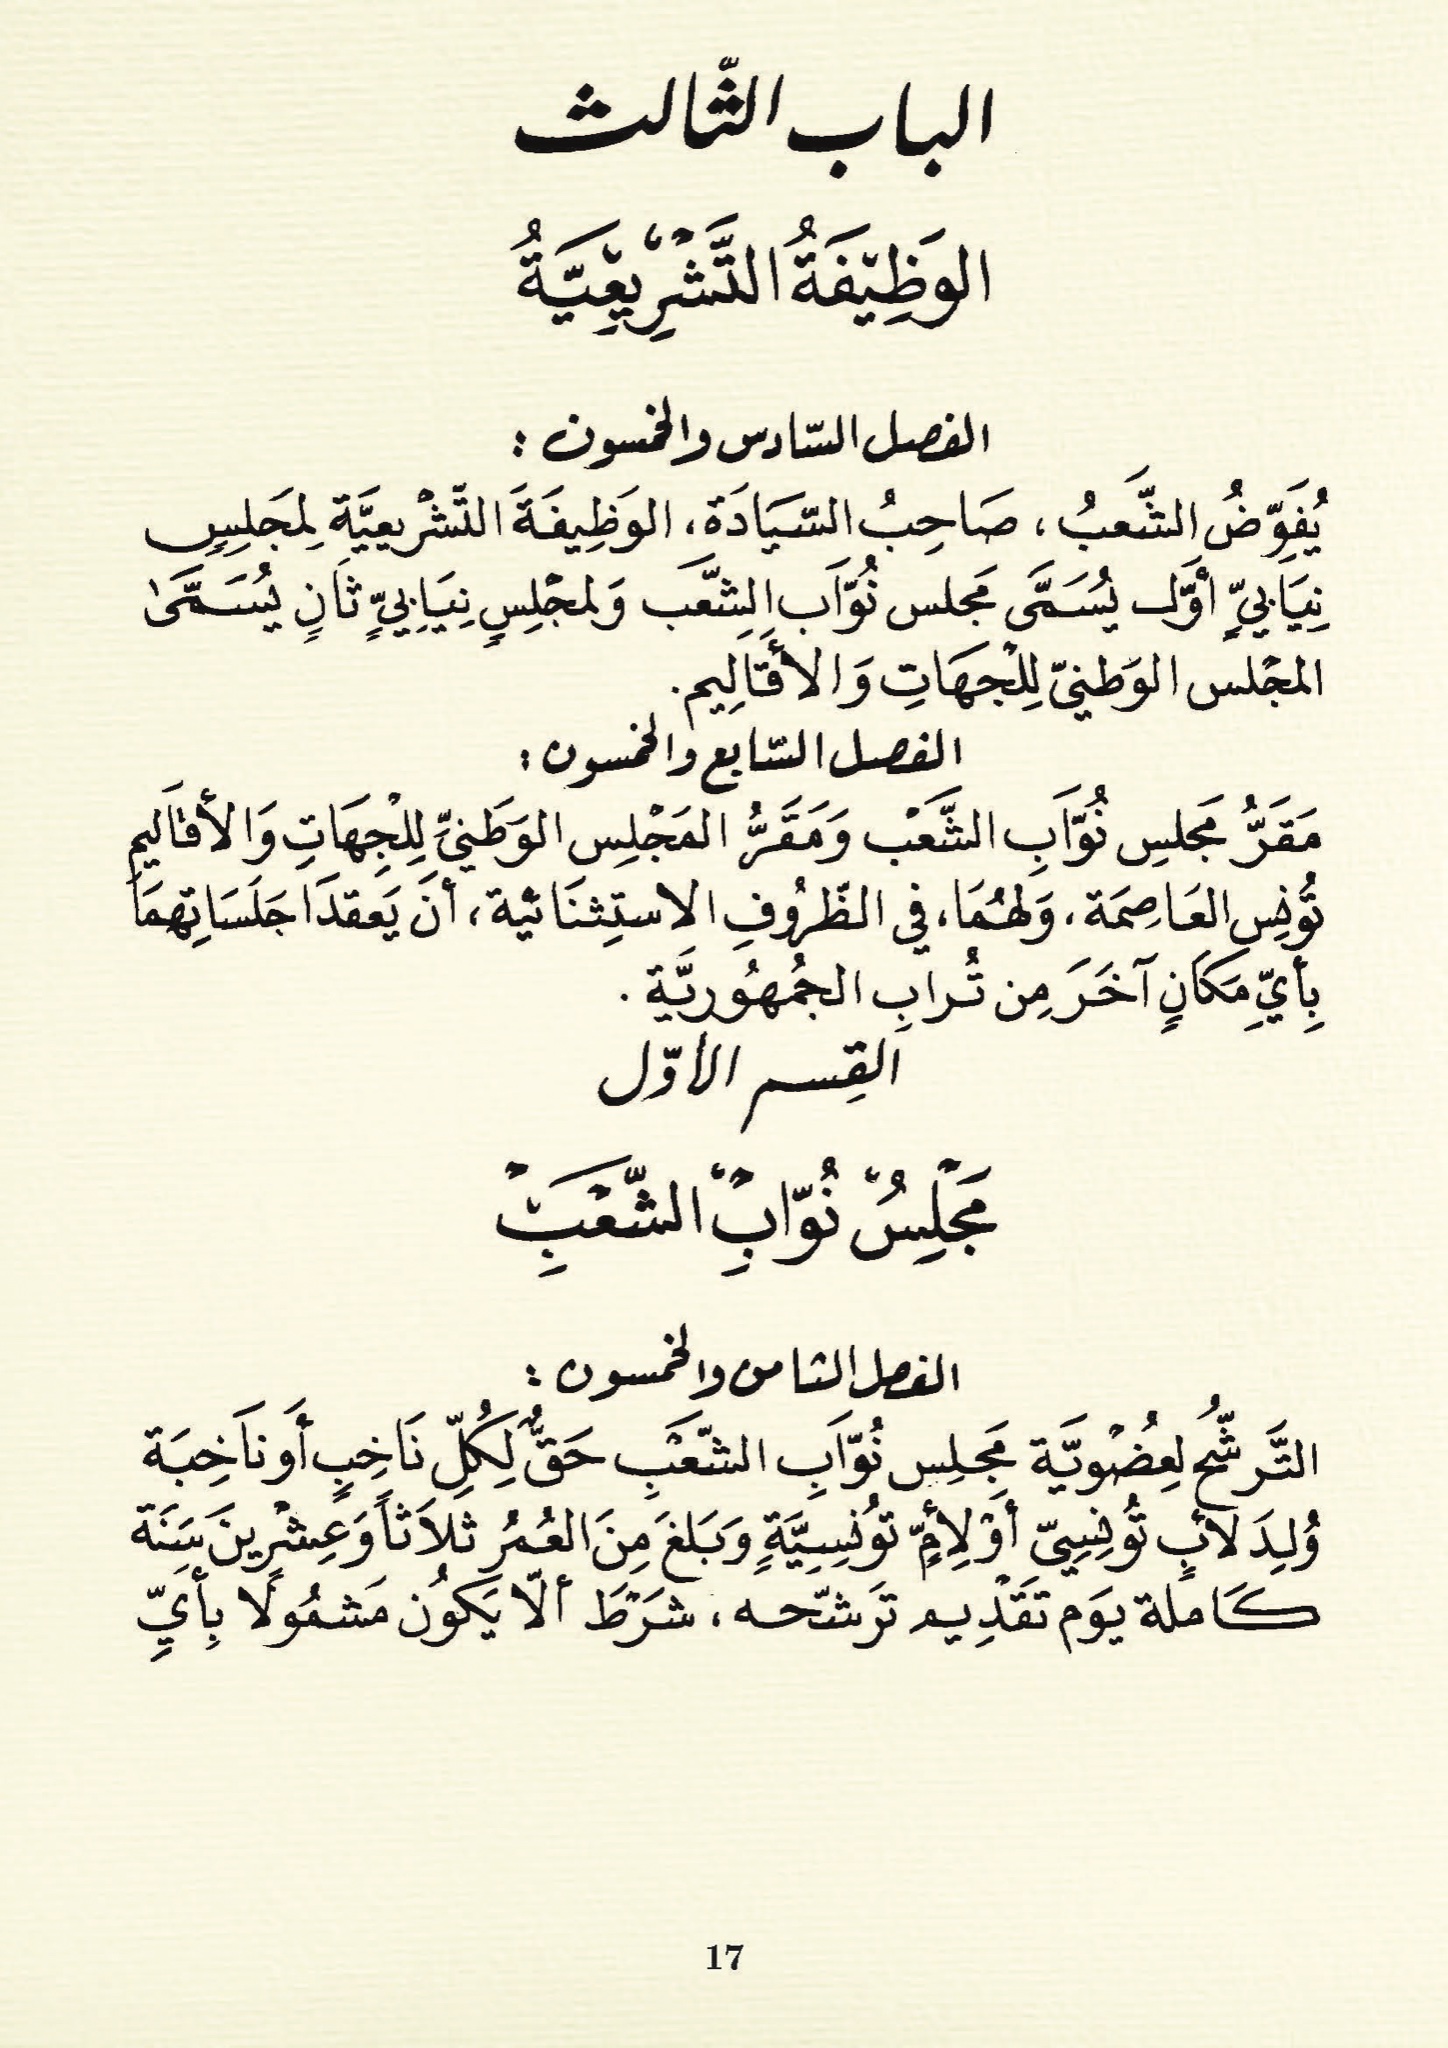 الباب الثّالث
الوَظِيّفَةُ التَّشْرِيعِيَّةُ
الفصل السّادس والخمسون :
يُفَوِّضُ الشَّعبُ ، صَاحِبُ السّيَادَة ، الوَظِيفَةَ التّشْريعيَّة لِمجَلِسٍ
نِيَابيٍّ أوَّل يُسَمَّى مَجلس نُوّاَب الِشَّعَب وَلمجْلِسٍ نِيَابِيٍّ ثَانٍ يُسَمَّىٰ
المجْلس الوَطنيّ لِلْجهَاتِ وَالأقَالِيم.
الفصل السّابع والخمسون :
مَقَرُّ مَجلسِ نُوَّابِ الشَّعَبْ وَمَقَرُّ المَجْلِس الوَطَنيِّ لِلْجِهَاتِ وَالأقاَليمِ
تُونِس العَاصِمَة ، وَلهُمَا ، في الظّرُوفِ الاستِثنَائيّة ، أنَ يَعقدَا جَلَسَاتِهمَا
بِأيِّ مَكَانٍ آخَرَ مِن تُرابِ الجمُهُوريَّة .
القِسم الأوّل
مَجْلِسُ نُوّابِ الشَّعْبِ
الفصل الثامن والخمسون :
التَّرشُّح لِعِضُويَّة مَجِلِس نُوّاَبِ الشّعَبِ حَقٌّ لِكُلِّ نَاخِبٍ أَو ناَخِبَة
وُلِدَ لأبٍ تُونِسِيّ أوْ لِأمٍّ توُنسِيَّةٍ وَبَلغَ مِنَ العُمُرُ ثلاَثاً وَعِشْرِينَ سَنَة
كَاملة يوَم تقَدِْيم تَرشّحه ، شرَطَ ألّا يَكوُن مَشمُولًا بِأيِّ
17